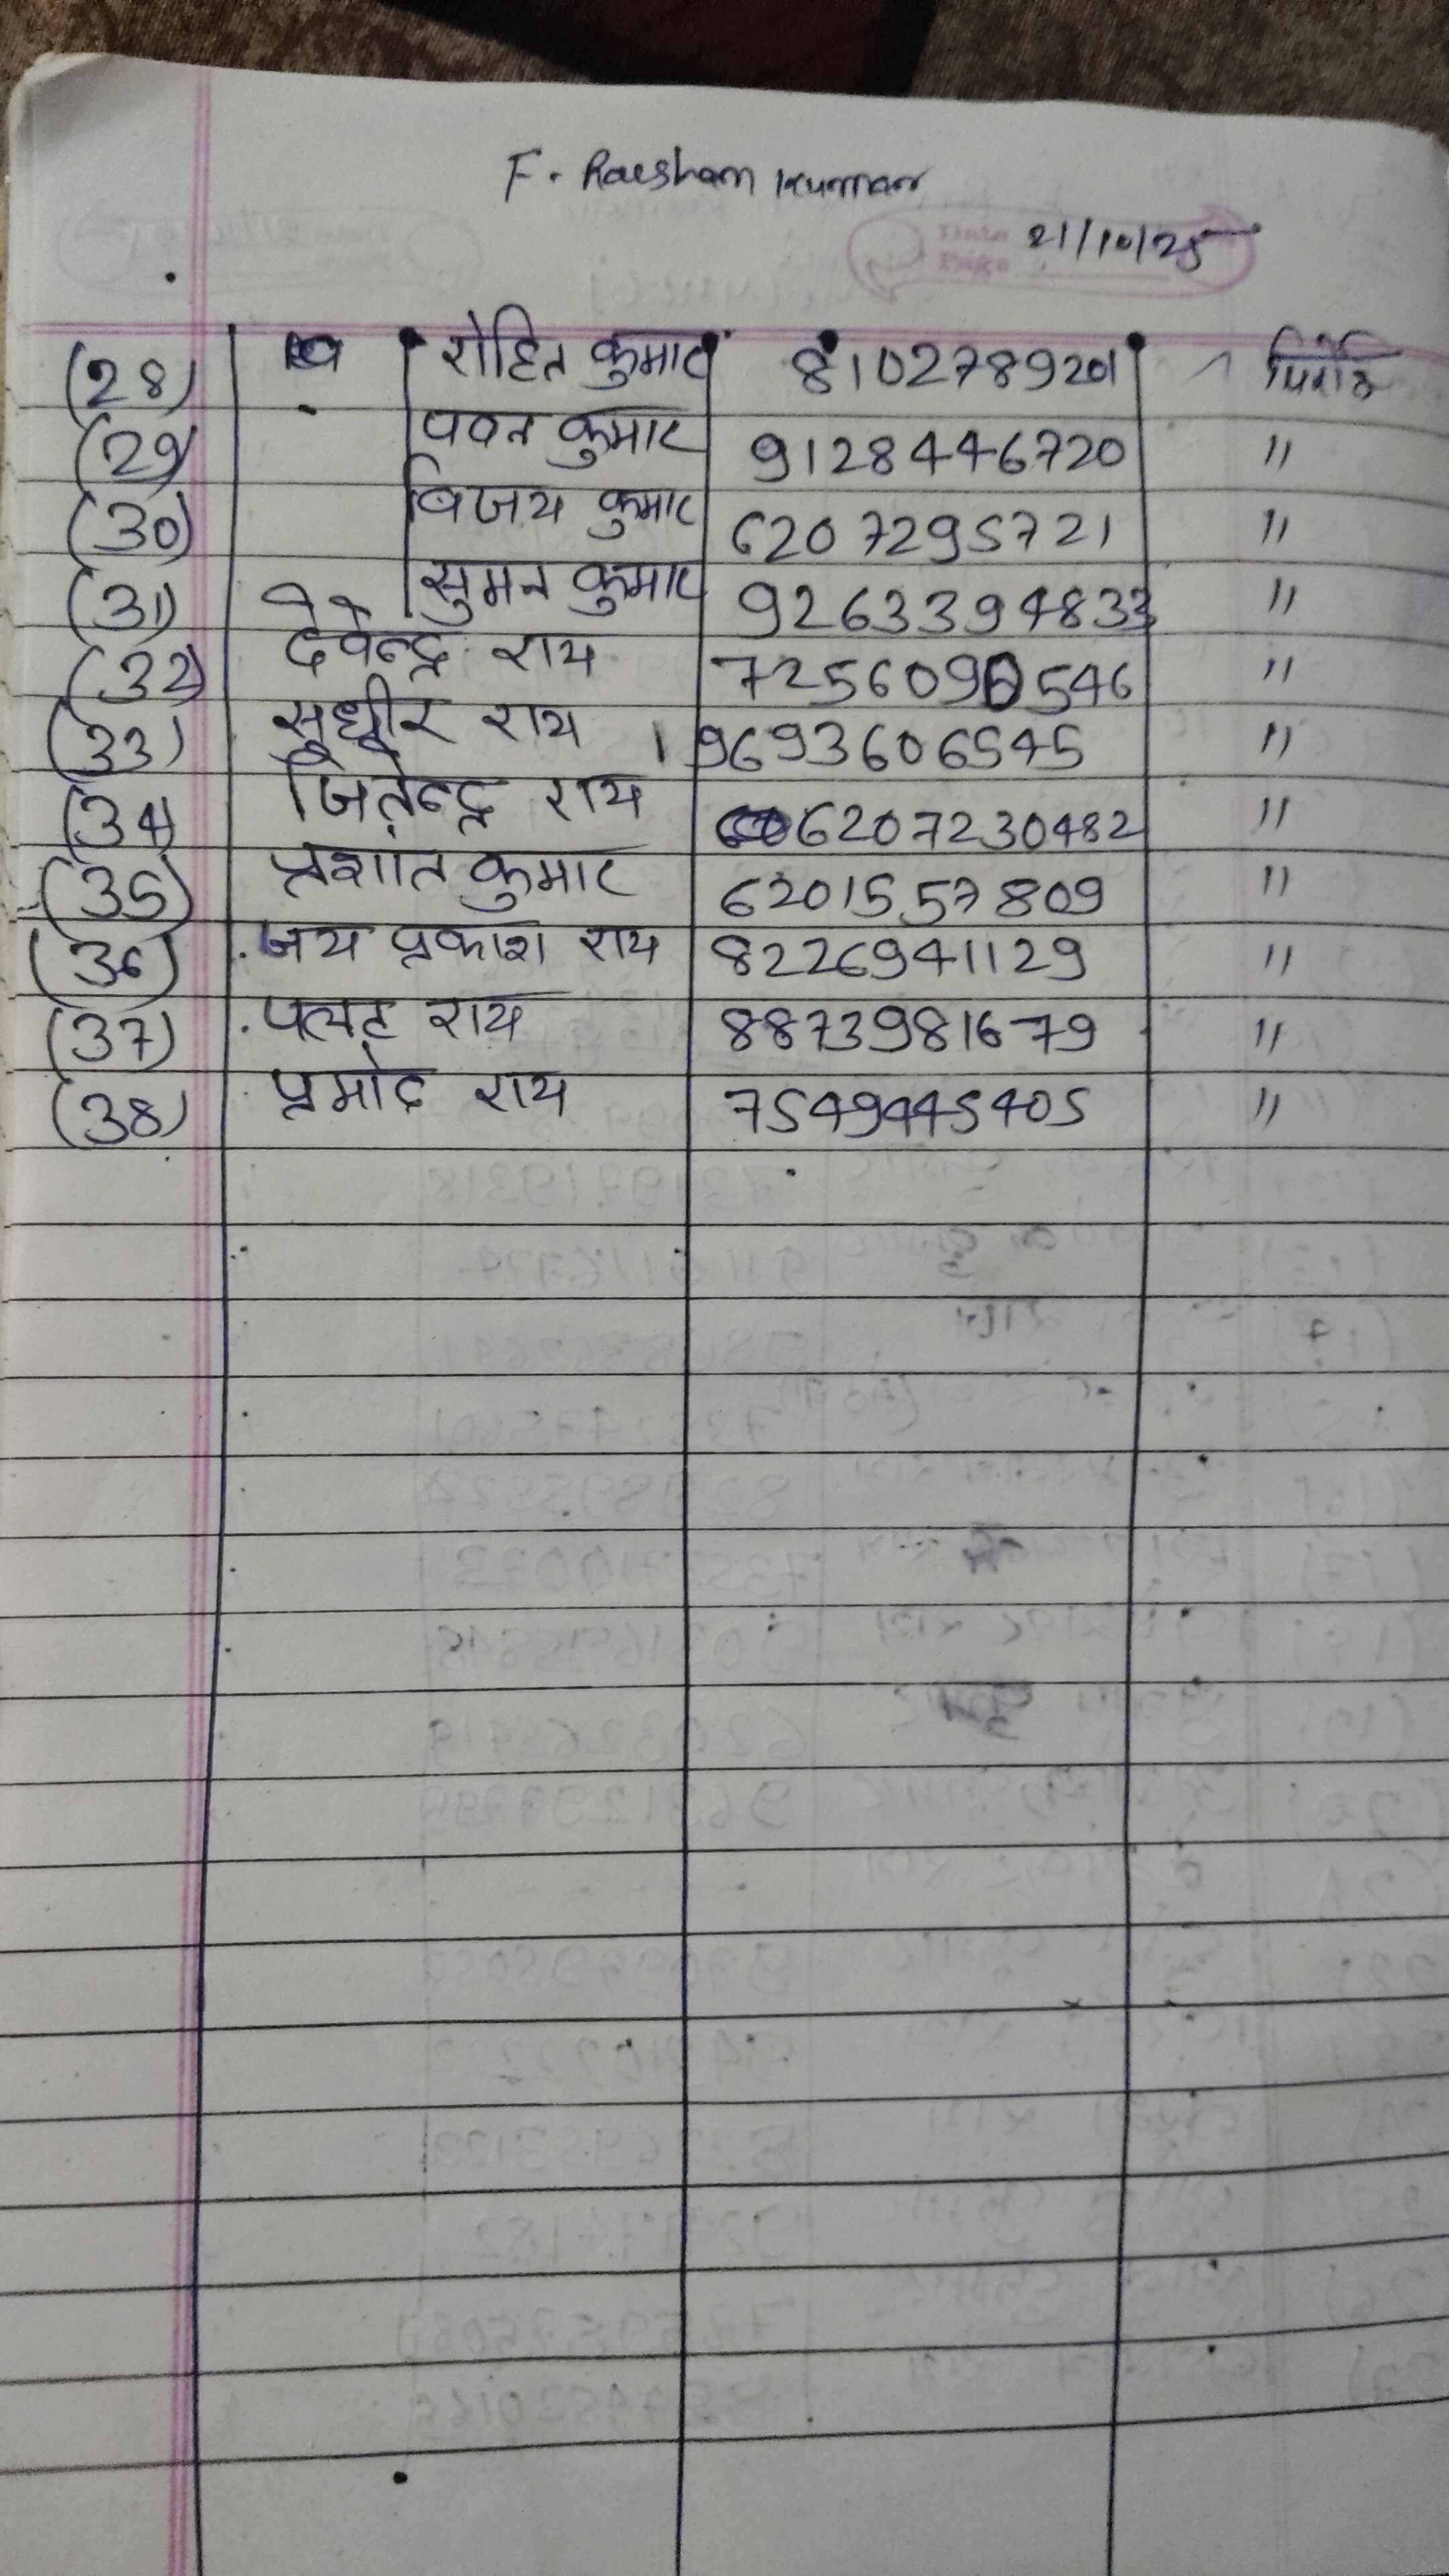 F. Raesham Kumar
Date 21/10/25
Page
(28) रोहित कुमार 8102789201
(29) पवन कुमार 9128446720 "
(30) विजय कुमार 6207295721 "
(31) सुमन कुमार 9263394833 "
(32) देवेन्द्र राय 7256090546 "
(33) सुधीर राय 9693606545 "
(34) जितेन्द्र राय 6207230482 "
(35) प्रशांत कुमार 6201557809 "
(36) जय प्रकाश राय 8226941129 "
(37) पलट राय 8873981679 "
(38) प्रमोद राय 7549445405 "